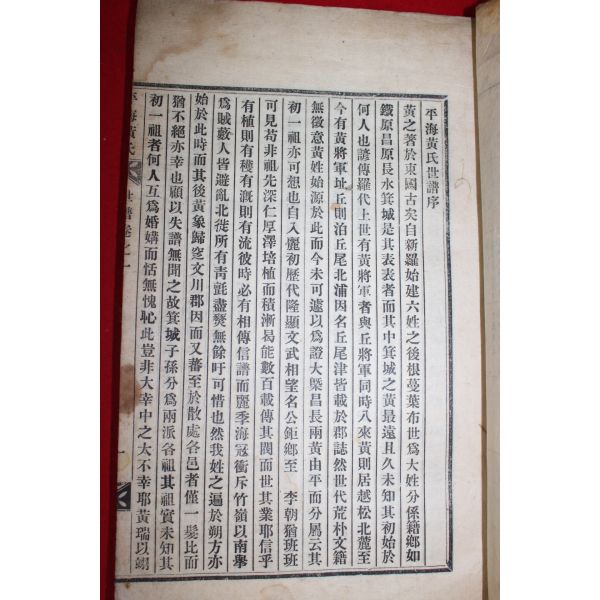 平海黃氏世譜序
黃之著於東國古矣自新羅始建六姓之後根蔓葉布世爲大姓分係籍鄉如
鐵原昌原長水箕城是其表表者而其中箕城之黃最遠且久未知其初始於
何人也諺傳羅代上世有黃將軍者與丘將軍同時入來黃則居越松北麓至
今有黃將軍址丘則泊丘尾北浦因名丘尾津皆載於郡誌然世代荒朴文籍
無徵意黃姓始源於此而今未可遽以爲證大槩昌長兩黃由平而分屬云其
初一祖亦可想也自入麗初歷代隆顯文武相望名公鉅鄉至 李朝猶班班
可見苟非祖先深仁厚澤培植而積漸曷能數百載傳其閥而世其業耶信乎
有植則有穫有漑則有流彼時必有相傳信譜而麗季海寇衝斥竹嶺以南擧
爲賊藪人皆避亂北徙所有靑氈盡爕無餘吁可惜也然我姓之遍於朔方亦
始於此時而其後黃象歸窆文川郡因而又蕃至於散處各邑者僅一髮比而
猶不絕亦幸也顧以失譜無聞之故箕城子孫分爲兩派各祖其祖實未知其
初一祖者何人互爲婚媾而恬無愧恥此豈非大幸中之大不幸耶黃瑞以
平海黃氏 世譜卷之一 一